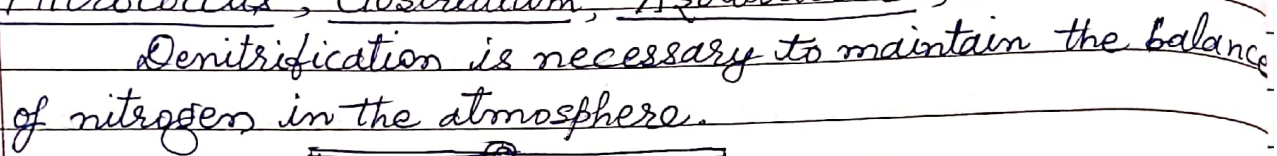 Denitrification is necessary to maintain the balance
of nitrogen in the atmosphere.